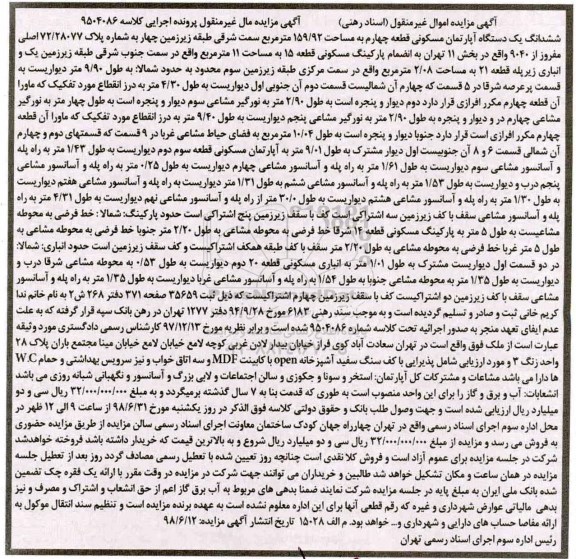 آگهی مزایده اموال غیرمنقول (اسناد رهنی) آگهی مزایده مال غیرمنقول پرونده اجرایی کلاسه ۹۵۰۴۰۸۶
ششدانگ یک دستگاه آپارتمان مسکونی قطعه چهارم به مساحت ۱۵۹/۹۲ مترمربع سمت شرقی طبقه زیرزمین چهار به شماره پلاک ۷۲/۲۸۰۷۷ اصلی
مفروز از ۹۰۴۰ واقع در بخش ۱۱ تهران به انضمام پارکینگ مسکونی قطعه ۱۵ به مساحت ۱۱ مترمربع واقع در سمت جنوب شرقی طبقه زیرزمین یک و
انباری زیرپله قطعه ۲۱ به مساحت ۲/۰۸ مترمربع واقع در سمت مرکزی طبقه زیرزمین سوم محدود به حدود شمالا: به طول ۹/۹۰ متر دیواریست به
قسمت پرعرصه شرقا در ۵ قسمت که چهارم آن شمالیست قسمت دوم آن جنوبی اول دیواریست به طول ۴/۳۰ متر به درز انقطاع مورد تفکیک که ماورا
آن قطعه چهارم مکرر افرازی قرار دارد دوم دیوار و پنجره است به طول ۲/۹۰ متر به نورگیر مشاعی سوم دیوار و پنجره است به طول چهار متر به نورگیر
مشاعی چهارم در و دیوار و پنجره به طول ۲/۹۰ متر به نورگیر مشاعی پنجم دیواریست به طول ۹/۴۰ متر به درز انقطاع مورد تفکیک که ماورا آن قطعه
چهارم مکرر افرازی است قرار دارد جنوبا دیوار و پنجره است به طول ۱۰/۰۴ مترمربع به فضای حیاط مشاعی غربا در ۹ قسمت که قسمتهای دوم و چهارم
آن شمالی قسمت ۶ و ۸ آن جنوبیست اول دیوار مشترک به طول ۹/۰۱ متر به آپارتمان مسکونی قطعه سوم دوم دیواریست به طول ۱/۴۳ متر به راه پله
و آسانسور مشاعی سوم دیواریست به طول ۱/۶۱ متر به راه پله و آسانسور مشاعی چهارم دیواریست به طول ۰/۲۵ متر به راه پله و آسانسور مشاعی
پنجم درب و دیواریست به طول ۱/۵۳ متر به راه پله و آسانسور مشاعی ششم به طول ۱/۳۱ متر دیواریست به راه پله و آسانسور مشاعی هفتم دیواریست
به طول ۱/۳۰ متر به راه پله و آسانسور مشاعی هشتم دیواریست به طول ۳۰/۰ متر از راه پله و آسانسور مشاعی نهم دیواریست به طول ۴/۳۱ متر به راه
پله و آسانسور مشاعی سقف با کف زیرزمین سه اشتراکی است کف با سقف زیرزمین پنج اشتراکی است حدود پارکینگ: شمالا: خط فرضی به محوطه
مشاعیست به طول ۵ متر به پارکینگ مسکونی قطعه ۱۴ شرقا خط فرضی به محوطه مشاعی به طول ۲/۲۰ متر جنوبا خط فرضی به محوطه مشاعی به
طول ۵ متر غربا خط فرضی به محوطه مشاعی به طول ۲/۲۰ متر سقف با کف طبقه همکف اشتراکیست و کف سقف زیرزمین است حدود انباری: شمالا:
در دو قسمت اول دیواریست مشترک به طول ۱/۰۱ متر به انباری مسکونی قطعه ۲۰ دوم دیواریست به طول ۰/۵۳ به محوطه مشاعی شرقا درب و
دیواریست به طول ۱/۳۵ متر به محوطه مشاعی جنوبا به طول ۱/۵۴ به راه پله و آسانسور مشاعی غربا دیواریست به طول ۱/۳۵ متر به راه پله و آسانسور
مشاعی سقف با کف زیرزمین دو اشتراکیست کف با سقف زیرزمین چهارم اشتراکیست که ذیل ثبت ۳۵۶۵۹ صفحه ۳۷۱ دفتر ۲۶۸ ش۲ به نام خانم ندا
کریم خانی ثبت و صادر و تسلیم گردیده است و به موجب سند رهنی ۶۱۸۳ مورخ ۹۴/۱/۲۸ دفتر ۱۲۷۷ تهران در رهن بانک سپه قرار گرفته که به علت
عدم ایفای تعهد منجر به صدور اجرائیه تحت کلاسه شماره ۹۵۰۴۰۸۶ شده است و برابر نظریه مورخ ۹۷/۱۲/۱۳ کارشناس رسمی دادگستری مورد وثیقه
عبارت است از ملک فوق واقع است در تهران سعادت آباد کوی فراز خیابان بیدار لادن غربی کوچه لامع خیابان لامع خیابان مینا مجتمع باران پلاک ۲۸
واحد زنگ ۳ و مورد ارزیابی شامل پذیرایی با کف سنگ سفید آشپزخانه open با کابینت MDF و سه اتاق خواب و نیز سرویس بهداشتی و حمام W.C
ها دارا می باشد مشاعات و مشترکات کل آپارتمان: استخر و سونا و جکوزی و سالن اجتماعات و لابی بزرگ و آسانسور و نگهبانی شبانه روزی می باشد
انشعابات: آب و برق و گاز را برای این واحد منصوب است به طوری که قدمت بنا به ۷ سال گذشته برمیگردد و به مبلغ ۳۲/۰۰۰/۰۰۰/۰۰۰ ریال سی و دو
میلیارد ریال ارزیابی شده است و جهت وصول طلب بانک و حقوق دولتی کلاسه فوق الذکر در روز یکشنبه مورخ ۹۸/۶/۳۱ از ساعت ۹ الی ۱۲ ظهر در
محل اداره سوم اجرای اسناد رسمی واقع در تهران چهارراه جهان کودک ساختمان معاونت اجرای اسناد رسمی سالن مزایده از طریق مزایده حضوری
به فروش می رسد و مزایده از مبلغ ۳۲/۰۰۰/۰۰۰/۰۰۰ ریال سی و دو میلیارد ریال شروع و به بالاترین قیمت که خریدار داشته باشد فروخته خواهدشد
شرکت در جلسه مزایده برای عموم آزاد است و فروش کلا نقدی است چنانچه روز تعیین شده با تعطیل رسمی مصادف گردد روز بعد از تعطیل جلسه
مزایده در همان ساعت و مکان تشکیل خواهد شد طالبین و خریداران می توانند جهت شرکت در مزایده در وقت مقرر با ارائه یک فقره چک تضمین
شده بانک ملی ایران به مبلغ پایه در جلسه مزایده شرکت نمایند ضمنا بدهی های مربوط به آب برق گاز اعم از حق انشعاب و اشتراک و مصرف و نیز
بدهی مالیاتی عوارض شهرداری و غیره که رقم قطعی آنها برای این اداره معلوم نشده است به عهده برنده مزایده است و تنظیم سند انتقال موکول به
ارائه مفاصا حساب های دارایی و شهرداری و... خواهد بود. م الف ۱۵۰۲۸ تاریخ انتشار آگهی مزایده: ۹۸/۶/۱۲
رئیس اداره سوم اجرای اسناد رسمی تهران